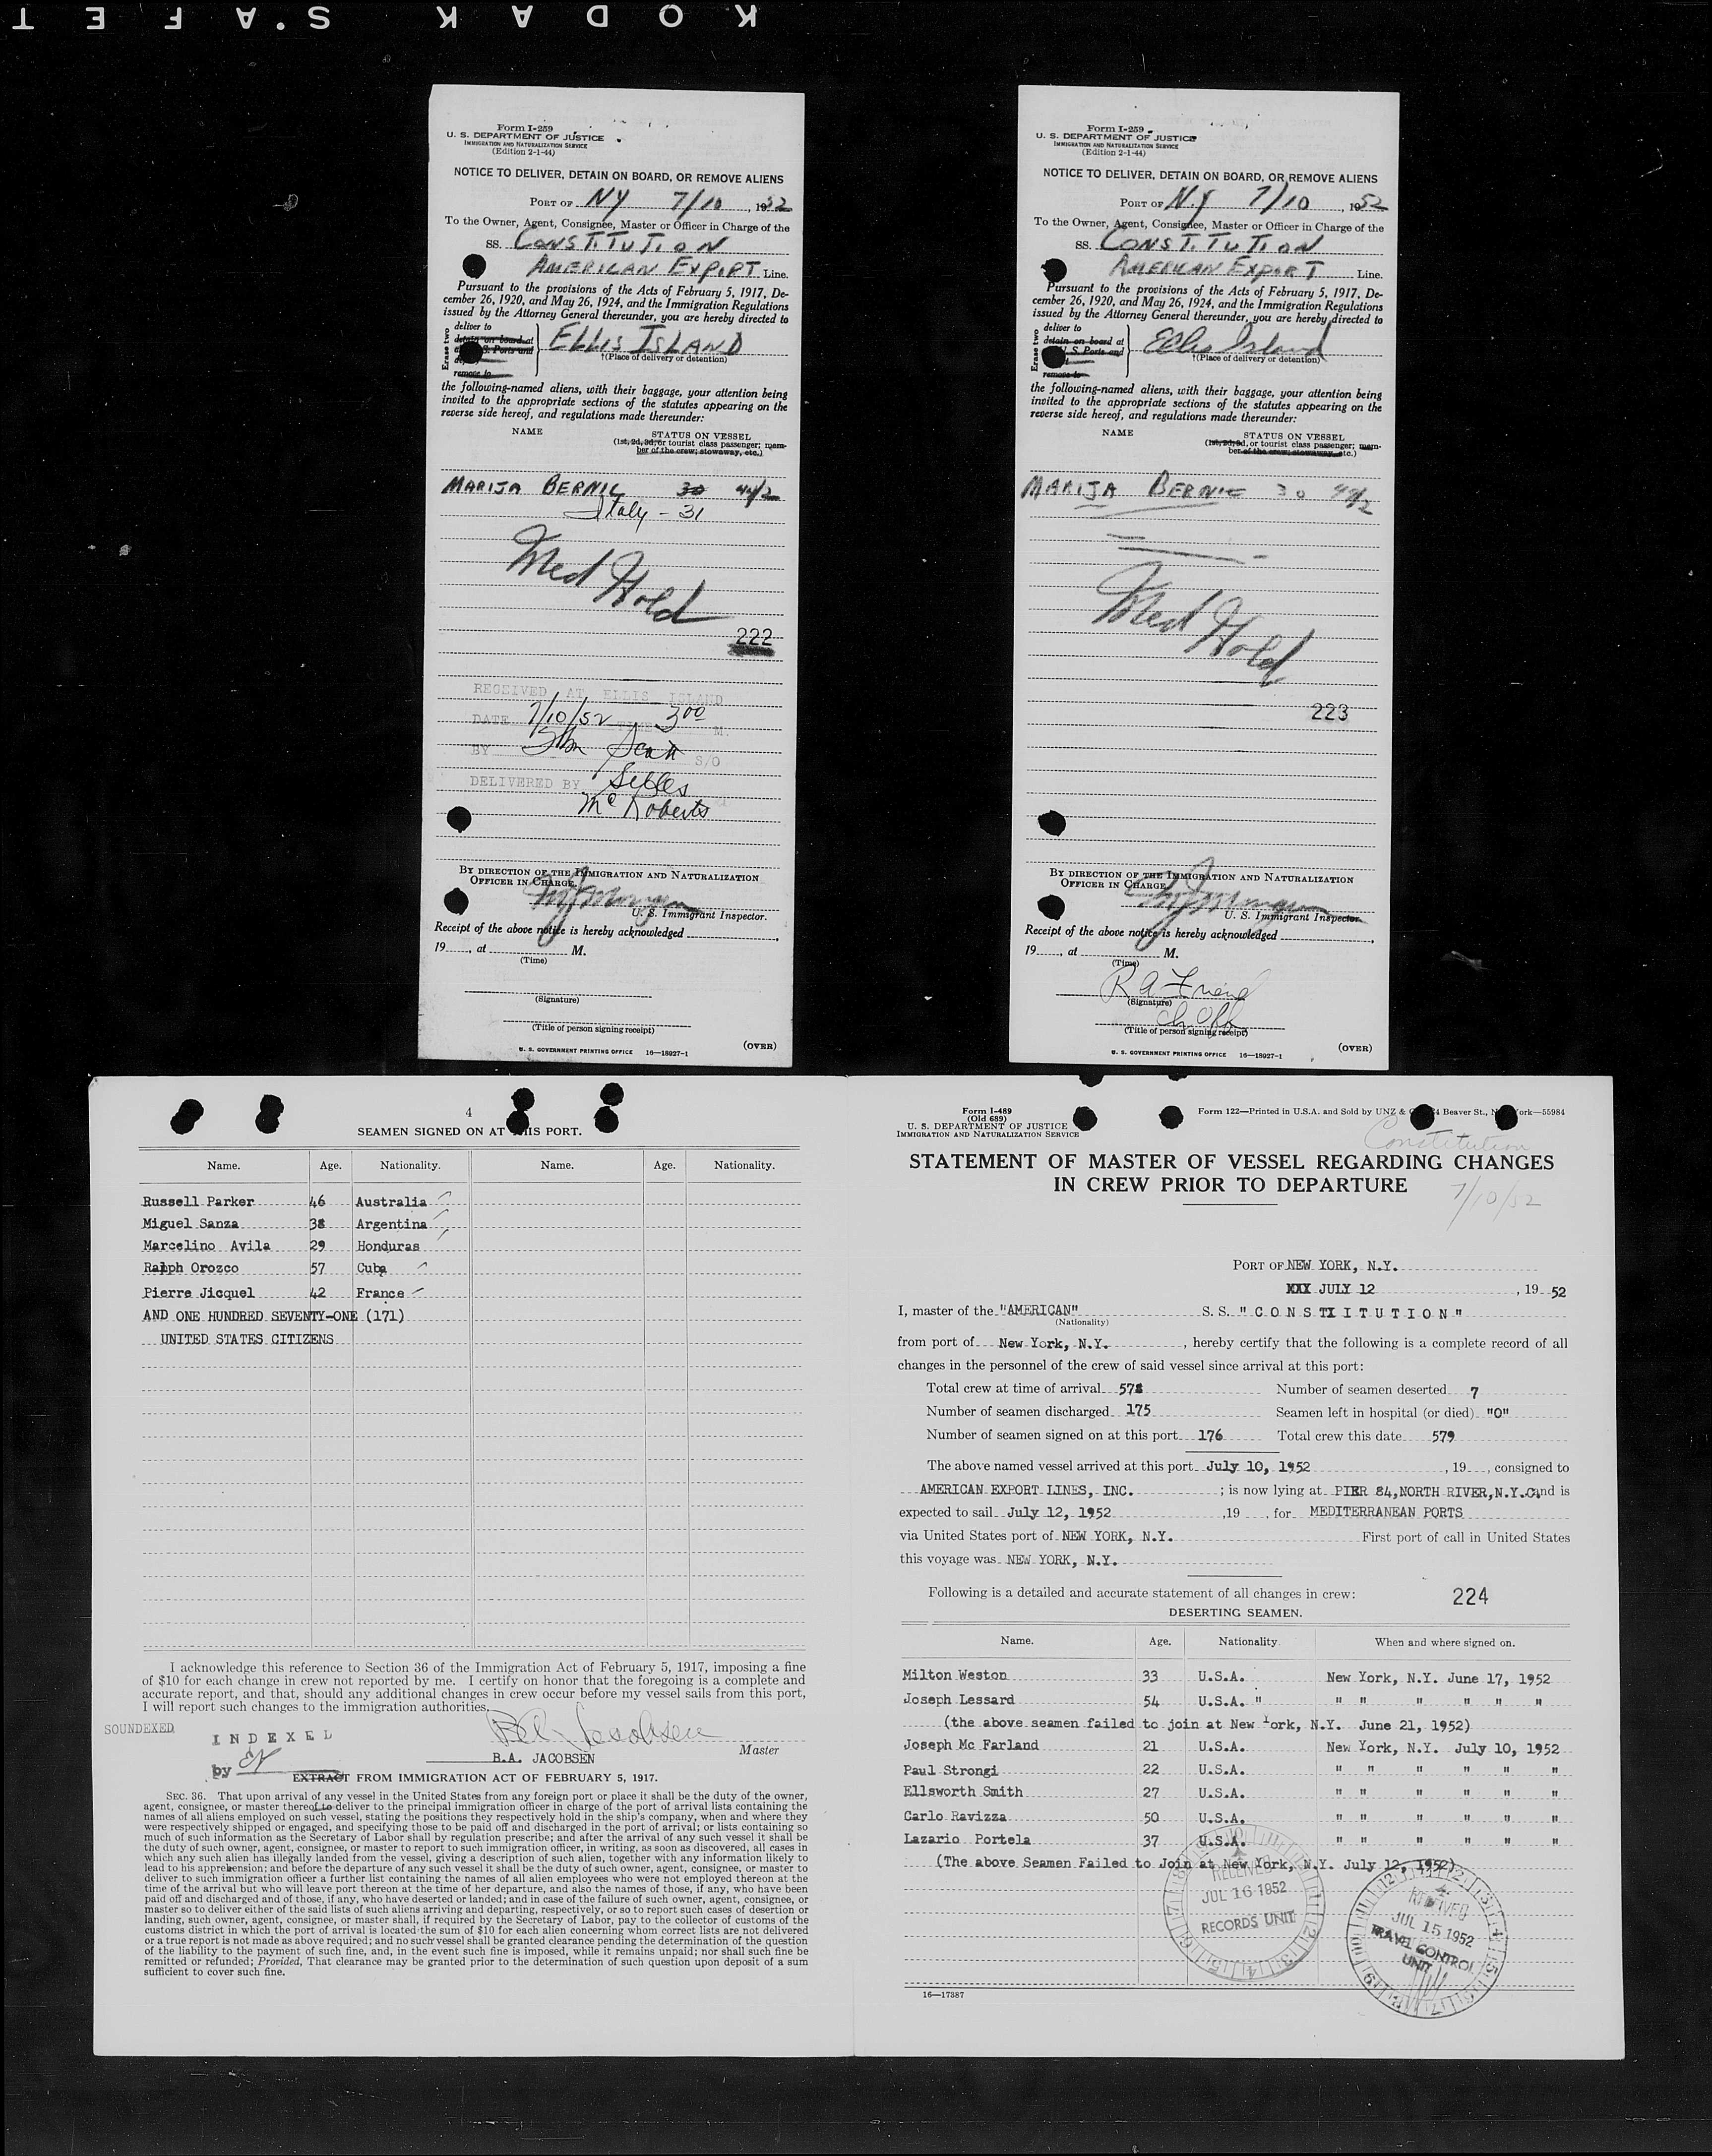 KODAK S.AFET
Form I-259
U. S. DEPARTMENT OF JUSTICE
IMMIGRATION AND NATURALIZATION SERVICE
(Edition 2-1-44)
NOTICE TO DELIVER, DETAIN ON BOARD, OR REMOVE ALIENS
PORT OF NY 7/10, 1952
To the Owner, Agent, Consignee, Master or Officer in Charge of the
SS. CONSTITUTION
AMERICAN EXPORT Line.
Pursuant to the provisions of the Acts of February 5, 1917, De-
cember 26, 1920, and May 26, 1924, and the Immigration Regulations
issued by the Attorney General thereunder, you are hereby directed to
Erase two
deliver to
detain on board at
U. S. Ports and
remove to
ELLIS ISLAND
†(Place of delivery or detention)
the following-named aliens, with their baggage, your attention being
invited to the appropriate sections of the statutes appearing on the
reverse side hereof, and regulations made thereunder:
NAME STATUS ON VESSEL
(1st, 2d, 3d, or tourist class passenger; mem-
ber of the crew; stowaway, etc.)
MARIJA BERNIC 30 44/2
Italy - 31
Med Hold
222
RECEIVED AT ELLIS ISLAND
DATE 7/10/52 TIME 3 00 M.
BY S/O
DELIVERED BY
Mc Roberts
BY DIRECTION OF THE IMMIGRATION AND NATURALIZATION
OFFICER IN CHARGE
U. S. Immigrant Inspector.
Receipt of the above notice is hereby acknowledged
19, at M.
(Time)
(Signature)
(Title of person signing receipt)
U. S. GOVERNMENT PRINTING OFFICE 16—18927-1 (OVER)
Form I-259
U. S. DEPARTMENT OF JUSTICE
IMMIGRATION AND NATURALIZATION SERVICE
(Edition 2-1-44)
NOTICE TO DELIVER, DETAIN ON BOARD, OR REMOVE ALIENS
PORT OF N.Y 7/10, 1952
To the Owner, Agent, Consignee, Master or Officer in Charge of the
SS. CONSTITUTION
AMERICAN EXPORT Line.
Pursuant to the provisions of the Acts of February 5, 1917, De-
cember 26, 1920, and May 26, 1924, and the Immigration Regulations
issued by the Attorney General thereunder, you are hereby directed to
Erase two
deliver to
detain on board at
U. S. Ports and
remove to
Ellis Island
†(Place of delivery or detention)
the following-named aliens, with their baggage, your attention being
invited to the appropriate sections of the statutes appearing on the
reverse side hereof, and regulations made thereunder:
NAME STATUS ON VESSEL
(1st, 2d, 3d, or tourist class passenger; mem-
ber of the crew; stowaway, etc.)
MARIJA BERNIC 30 44/2
Med Hold
223
BY DIRECTION OF THE IMMIGRATION AND NATURALIZATION
OFFICER IN CHARGE
U. S. Immigrant Inspector.
Receipt of the above notice is hereby acknowledged
19, at M.
(Time)
R A Friend
(Signature)
(Title of person signing receipt)
U. S. GOVERNMENT PRINTING OFFICE 16—18927-1 (OVER)
4
SEAMEN SIGNED ON AT THIS PORT.
Name. Age. Nationality. Name. Age. Nationality.
Russell Parker 46 Australia
Miguel Sanza 38 Argentina
Marcelino Avila 29 Honduras
Ralph Orozco 57 Cuba
Pierre Jicquel 42 France
AND ONE HUNDRED SEVENTY-ONE (171)
UNITED STATES CITIZENS
I acknowledge this reference to Section 36 of the Immigration Act of February 5, 1917, imposing a fine
of $10 for each change in crew not reported by me. I certify on honor that the foregoing is a complete and
accurate report, and that, should any additional changes in crew occur before my vessel sails from this port,
I will report such changes to the immigration authorities.
SOUNDEXED
INDEXED
by
B.A. Jacobsen
B.A. JACOBSEN Master
EXTRACT FROM IMMIGRATION ACT OF FEBRUARY 5, 1917.
SEC. 36. That upon arrival of any vessel in the United States from any foreign port or place it shall be the duty of the owner,
agent, consignee, or master thereof to deliver to the principal immigration officer in charge of the port of arrival lists containing the
names of all aliens employed on such vessel, stating the positions they respectively hold in the ship's company, when and where they
were respectively shipped or engaged, and specifying those to be paid off and discharged in the port of arrival; or lists containing so
much of such information as the Secretary of Labor shall by regulation prescribe; and after the arrival of any such vessel it shall be
the duty of such owner, agent, consignee, or master to report to such immigration officer, in writing, as soon as discovered, all cases in
which any such alien has illegally landed from the vessel, giving a description of such alien, together with any information likely to
lead to his apprehension; and before the departure of any such vessel it shall be the duty of such owner, agent, consignee, or master to
deliver to such immigration officer a further list containing the names of all alien employees who were not employed thereon at the
time of the arrival but who will leave port thereon at the time of her departure, and also the names of those, if any, who have been
paid off and discharged and of those, if any, who have deserted or landed; and in case of the failure of such owner, agent, consignee, or
master so to deliver either of the said lists of such aliens arriving and departing, respectively, or so to report such cases of desertion or
landing, such owner, agent, consignee, or master shall, if required by the Secretary of Labor, pay to the collector of customs of the
customs district in which the port of arrival is located the sum of $10 for each alien concerning whom correct lists are not delivered
or a true report is not made as above required; and no such vessel shall be granted clearance pending the determination of the question
of the liability to the payment of such fine, and, in the event such fine is imposed, while it remains unpaid; nor shall such fine be
remitted or refunded; Provided, That clearance may be granted prior to the determination of such question upon deposit of a sum
sufficient to cover such fine.
Form I-489
(Old 689)
U. S. DEPARTMENT OF JUSTICE
IMMIGRATION AND NATURALIZATION SERVICE
Form 122—Printed in U.S.A. and Sold by UNZ & Beaver St., ork—55984
Constitution
7/10/52
STATEMENT OF MASTER OF VESSEL REGARDING CHANGES
IN CREW PRIOR TO DEPARTURE
PORT OF NEW YORK, N.Y.
XXX JULY 12, 19 52
I, master of the "AMERICAN" S. S. "CONSTITUTION"
(Nationality)
from port of New York, N.Y., hereby certify that the following is a complete record of all
changes in the personnel of the crew of said vessel since arrival at this port:
Total crew at time of arrival 578 Number of seamen deserted 7
Number of seamen discharged 175 Seamen left in hospital (or died) "0"
Number of seamen signed on at this port 176 Total crew this date 579
The above named vessel arrived at this port July 10, 1952, 19, consigned to
AMERICAN EXPORT LINES, INC.; is now lying at PIER 84, NORTH RIVER, N.Y.C. and is
expected to sail July 12, 1952, 19, for MEDITERRANEAN PORTS
via United States port of NEW YORK, N.Y. First port of call in United States
this voyage was NEW YORK, N.Y.
Following is a detailed and accurate statement of all changes in crew: 224
DESERTING SEAMEN.
Name. Age. Nationality. When and where signed on.
Milton Weston 33 U.S.A. New York, N.Y. June 17, 1952
Joseph Lessard 54 U.S.A. " " " " " " "
(the above seamen failed to join at New York, N.Y. June 21, 1952)
Joseph Mc Farland 21 U.S.A. New York, N.Y. July 10, 1952
Paul Strongi 22 U.S.A. " " " " " "
Ellsworth Smith 27 U.S.A. " " " " " "
Carlo Ravizza 50 U.S.A. " " " " " "
Lazario Portela 37 U.S.A. " " " " " "
(The above Seamen Failed to Join at New York, N.Y. July 12, 1952)
RECEIVED
JUL 16 1952
RECORDS UNIT
RECEIVED
JUL 15 1952
TRAVEL CONTROL
UNIT
16—17387